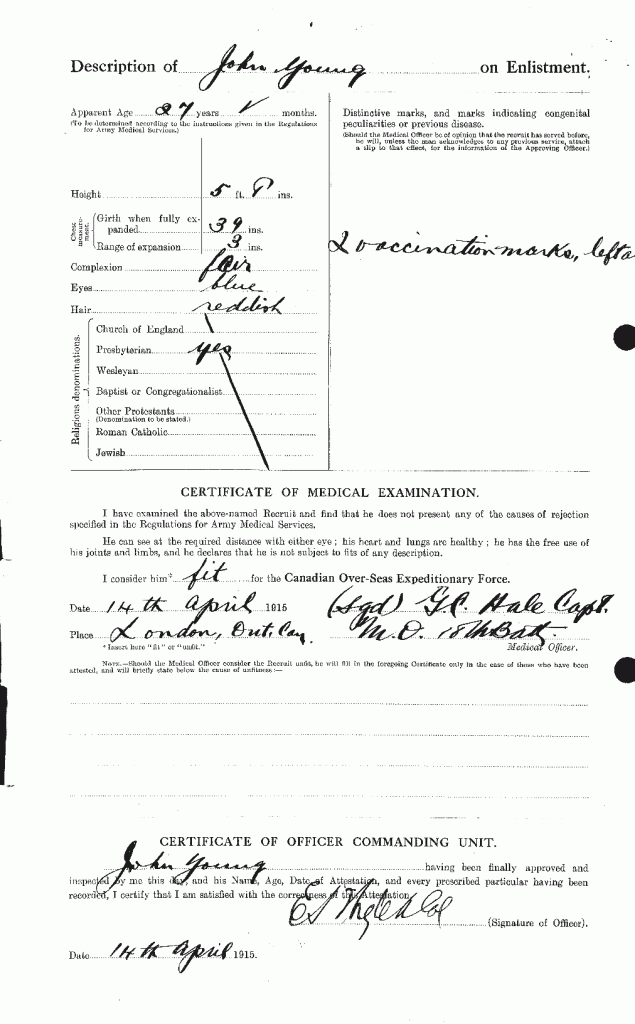 Description of John Young on Enlistment.
Apparent Age 27 years months.
(To be determined according to the instructions given in the Regulations
for Army Medical Services.)
Height 5 ft. 8 ins.
Chest measurement.
Girth when fully ex-
panded 39 ins.
Range of expansion 3 ins.
Complexion fair
Eyes blue
Hair reddish
Religious denominations.
Church of England
Presbyterian yes
Wesleyan
Baptist or Congregationalist
Other Protestants
(Denomination to be stated.)
Roman Catholic
Jewish
Distinctive marks, and marks indicating congenital
peculiarities or previous disease.
(Should the Medical Officer be of opinion that the recruit has served before,
he will, unless the man acknowledges to any previous service, attach
a slip to that effect, for the information of the Approving Officer.)
2 vaccination marks, left a
CERTIFICATE OF MEDICAL EXAMINATION.
I have examined the above-named Recruit and find that he does not present any of the causes of rejection
specified in the Regulations for Army Medical Services.
He can see at the required distance with either eye; his heart and lungs are healthy; he has the free use of
his joints and limbs, and he declares that he is not subject to fits of any description.
I consider him* fit for the Canadian Over-Seas Expeditionary Force.
Date 14th April 1915 (Sgd) G.C. Hale Capt.
Place London, Ont. Can. M.O. 18th Batt.
*Insert here "fit" or "unfit." Medical Officer.
NOTE.—Should the Medical Officer consider the Recruit unfit, he will fill in the foregoing Certificate only in the case of those who have been
attested, and will briefly state below the cause of unfitness:—
CERTIFICATE OF OFFICER COMMANDING UNIT.
John Young having been finally approved and
inspected by me this day, and his Name, Age, Date of Attestation, and every prescribed particular having been
recorded, I certify that I am satisfied with the correctness of this Attestation.
Col
(Signature of Officer).
Date 14th April 1915.